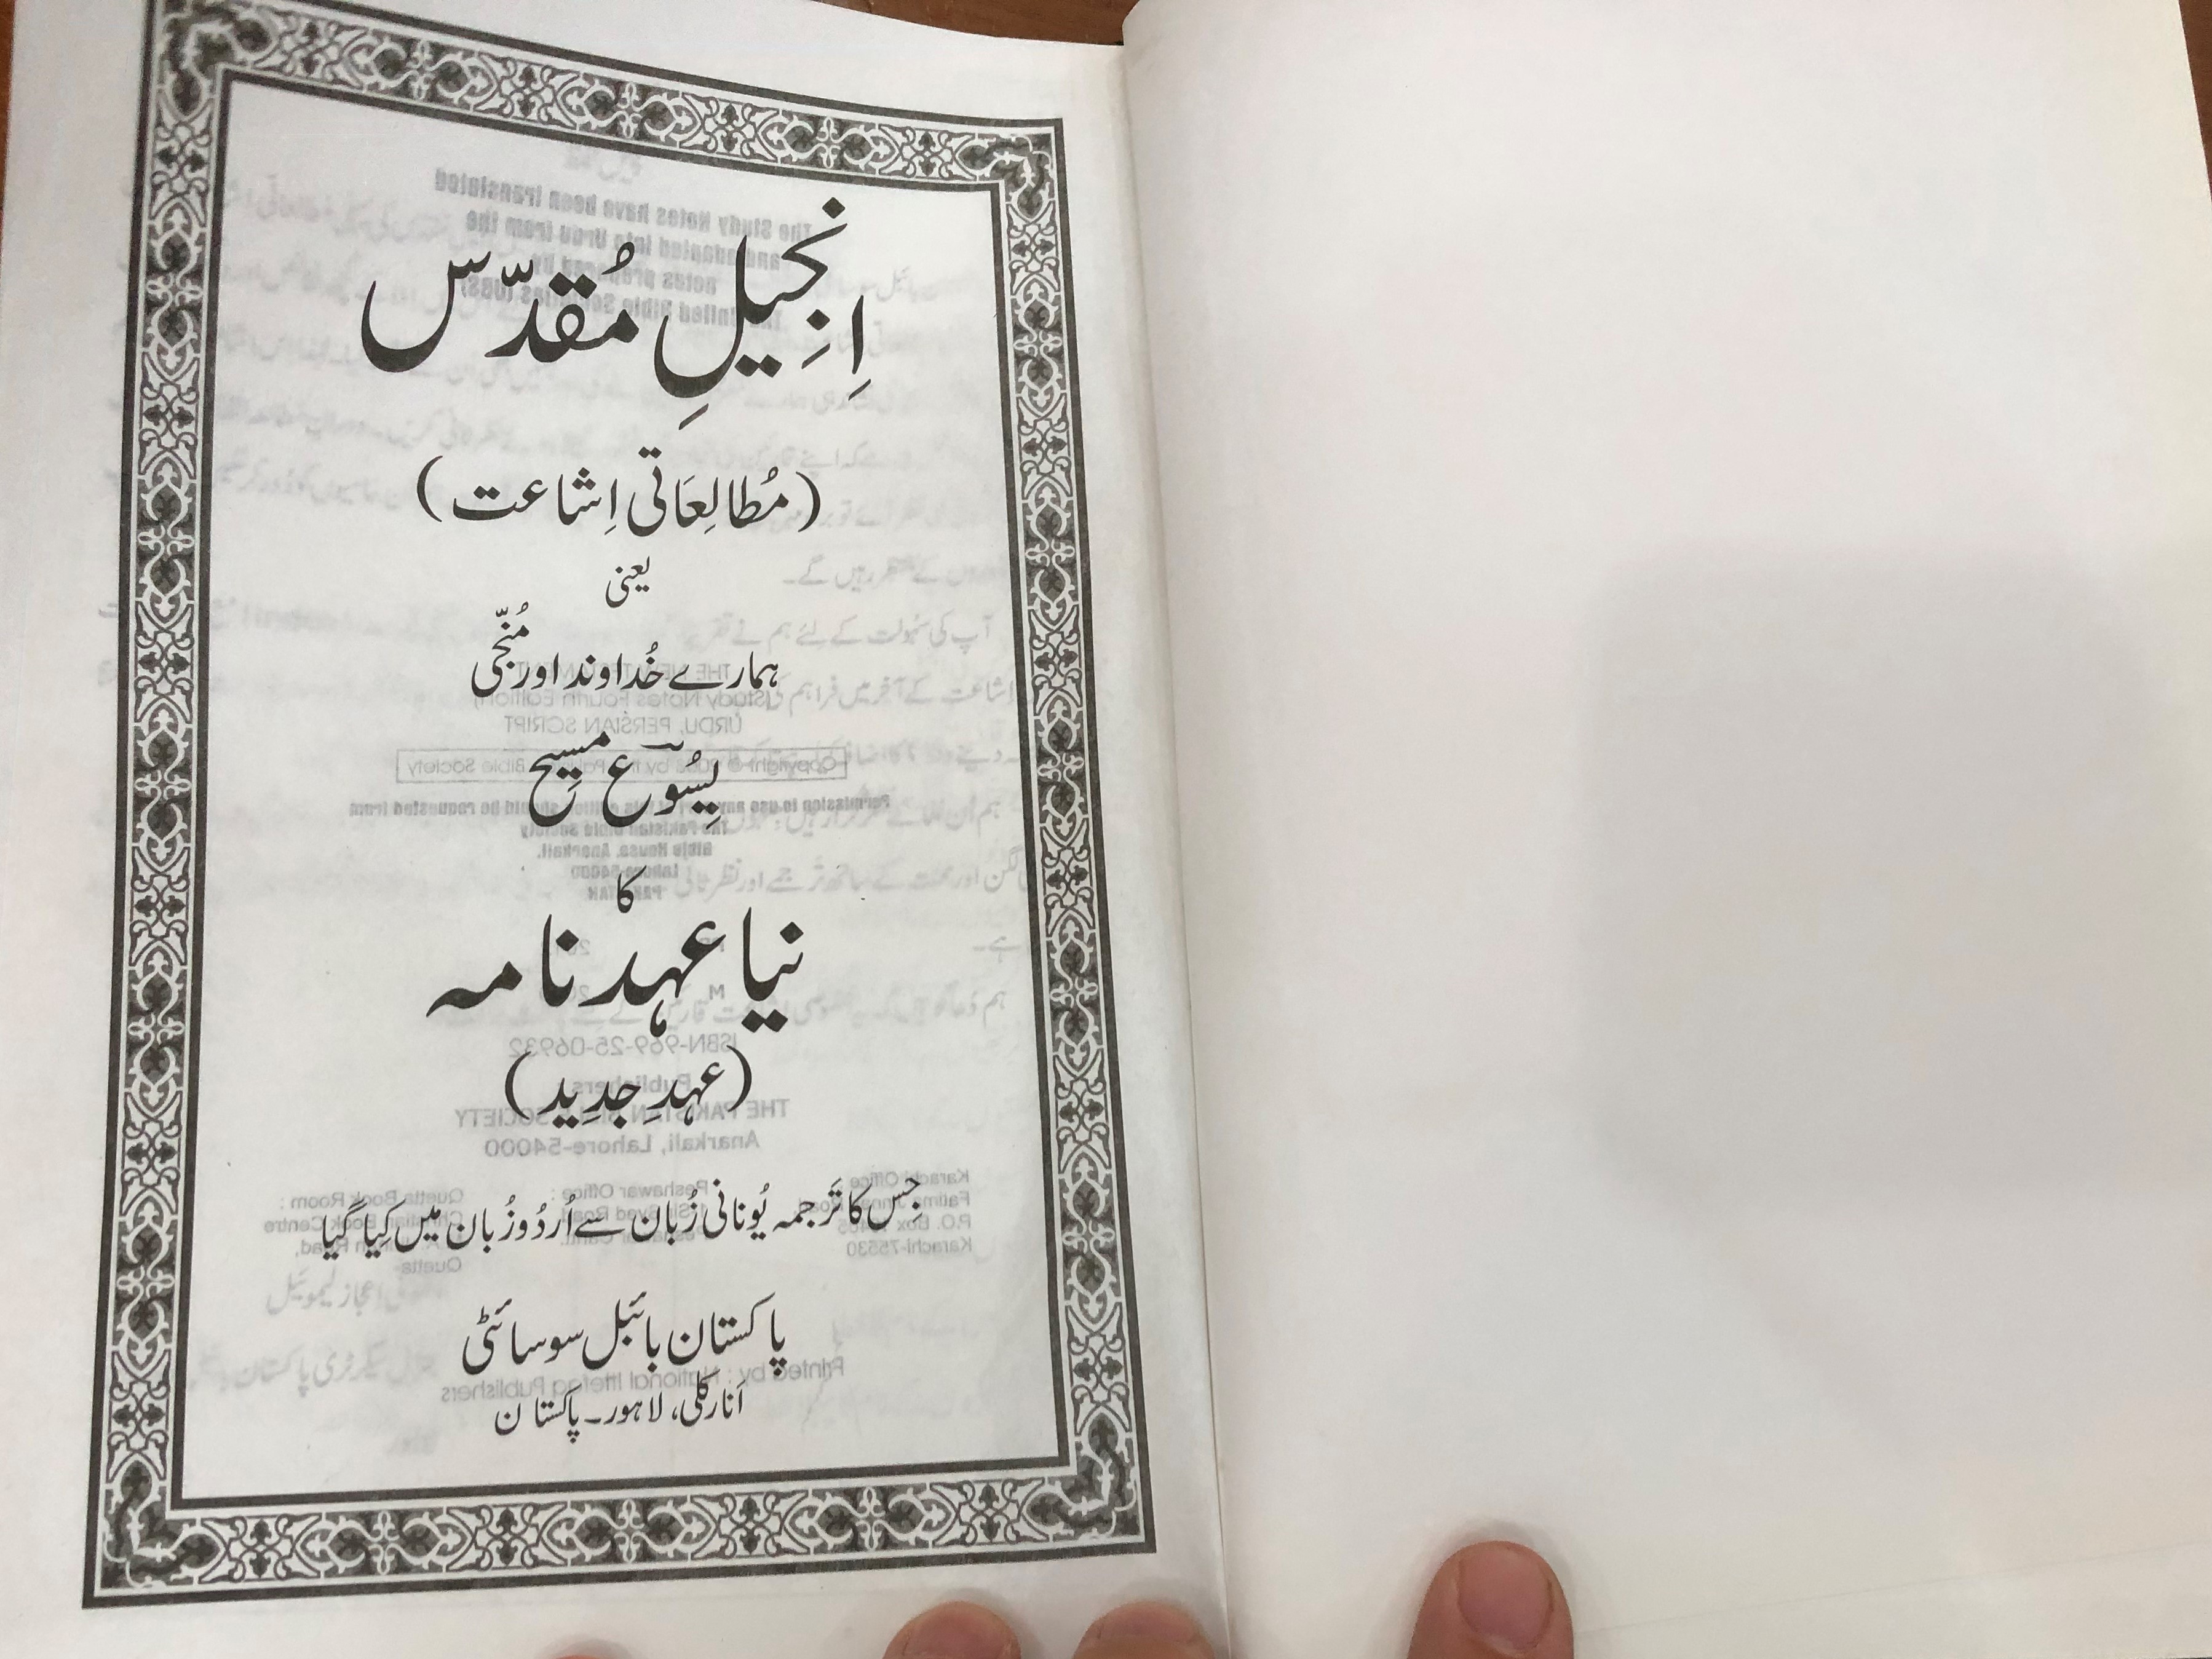 اِنجیلِ مُقدّس
(مُطالِعَاتی اِشاعت)
یعنی
ہمارے خُداوند اور مُنجّی
یِسُوؔع مسِیح
کا
نیا عہد نامہ
(عہدِ جدِید)
جِس کا تَرجمہ یُونانی زُبان سے اُردُو زُبان میں کِیا گیا
پاکستان بائبل سوسائٹی
اَنارکلی، لاہور۔ پاکستان